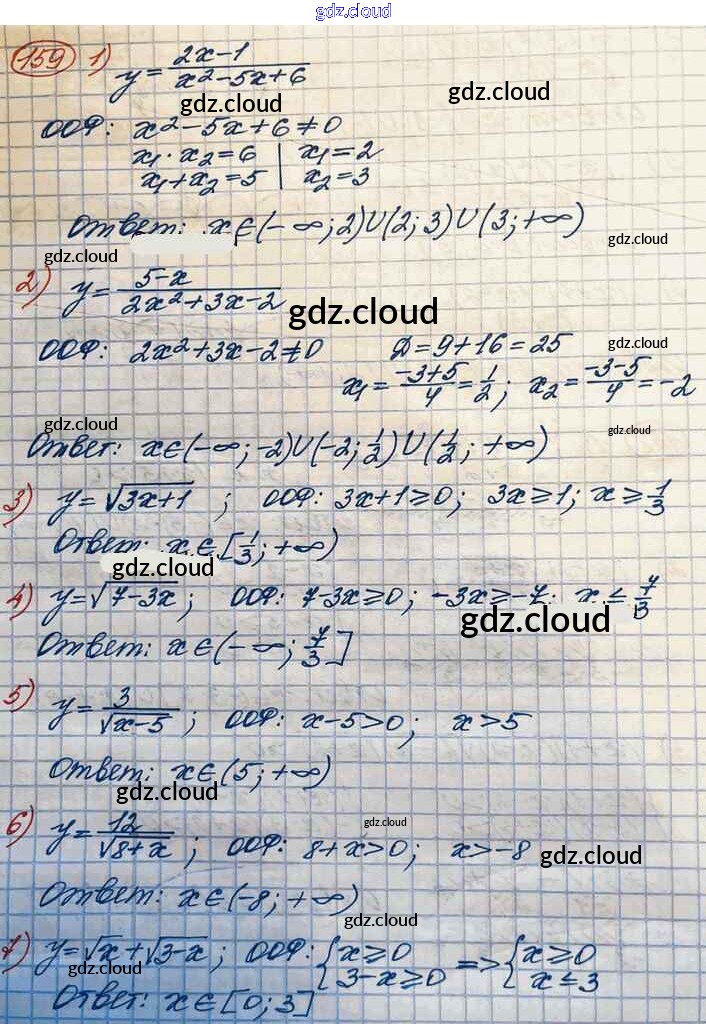 gdz.cloud
159 1) y = (2x-1)/(x²-5x+6)
gdz.cloud gdz.cloud
ООФ: x²-5x+6≠0
x₁·x₂=6 | x₁=2
x₁+x₂=5 | x₂=3
Ответ: x∈(-∞;2)∪(2;3)∪(3;+∞)
gdz.cloud gdz.cloud
2) y = (5-x)/(2x²+3x-2)
gdz.cloud
ООФ: 2x²+3x-2≠0 Д=9+16=25
gdz.cloud
x₁=(-3+5)/4=1/2; x₂=(-3-5)/4=-2
gdz.cloud gdz.cloud
Ответ: x∈(-∞;-2)∪(-2;1/2)∪(1/2;+∞)
3) y=√(3x+1); ООФ: 3x+1≥0; 3x≥1; x≥1/3
Ответ: x∈[1/3;+∞)
gdz.cloud
4) y=√(7-3x); ООФ: 7-3x≥0; -3x≥-7; x≤7/3
gdz.cloud
Ответ: x∈(-∞;7/3]
5) y=3/√(x-5); ООФ: x-5>0; x>5
Ответ: x∈(5;+∞)
gdz.cloud
6) y=12/√(8+x); ООФ: 8+x>0; x>-8
gdz.cloud gdz.cloud
Ответ: x∈(-8;+∞)
gdz.cloud
7) y=√x+√(3-x); ООФ: {x≥0 => {x≥0
gdz.cloud 3-x≥0 x≤3
Ответ: x∈[0;3]
gdz.cloud